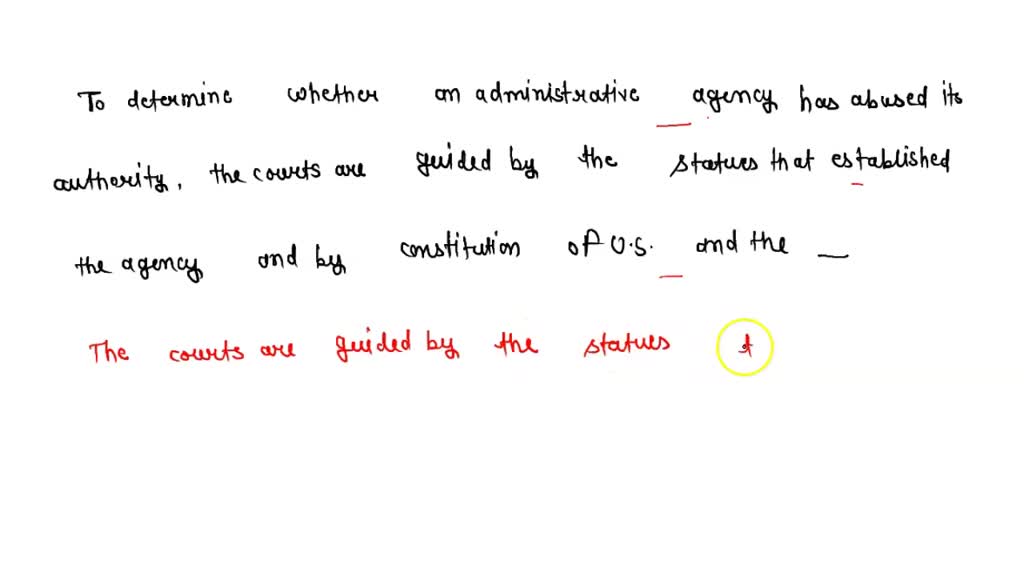 To determine whether an administrative agency has abused its
authority, the courts are guided by the statues that established
the agency and by constitution of U.S. and the __
The courts are guided by the statues t